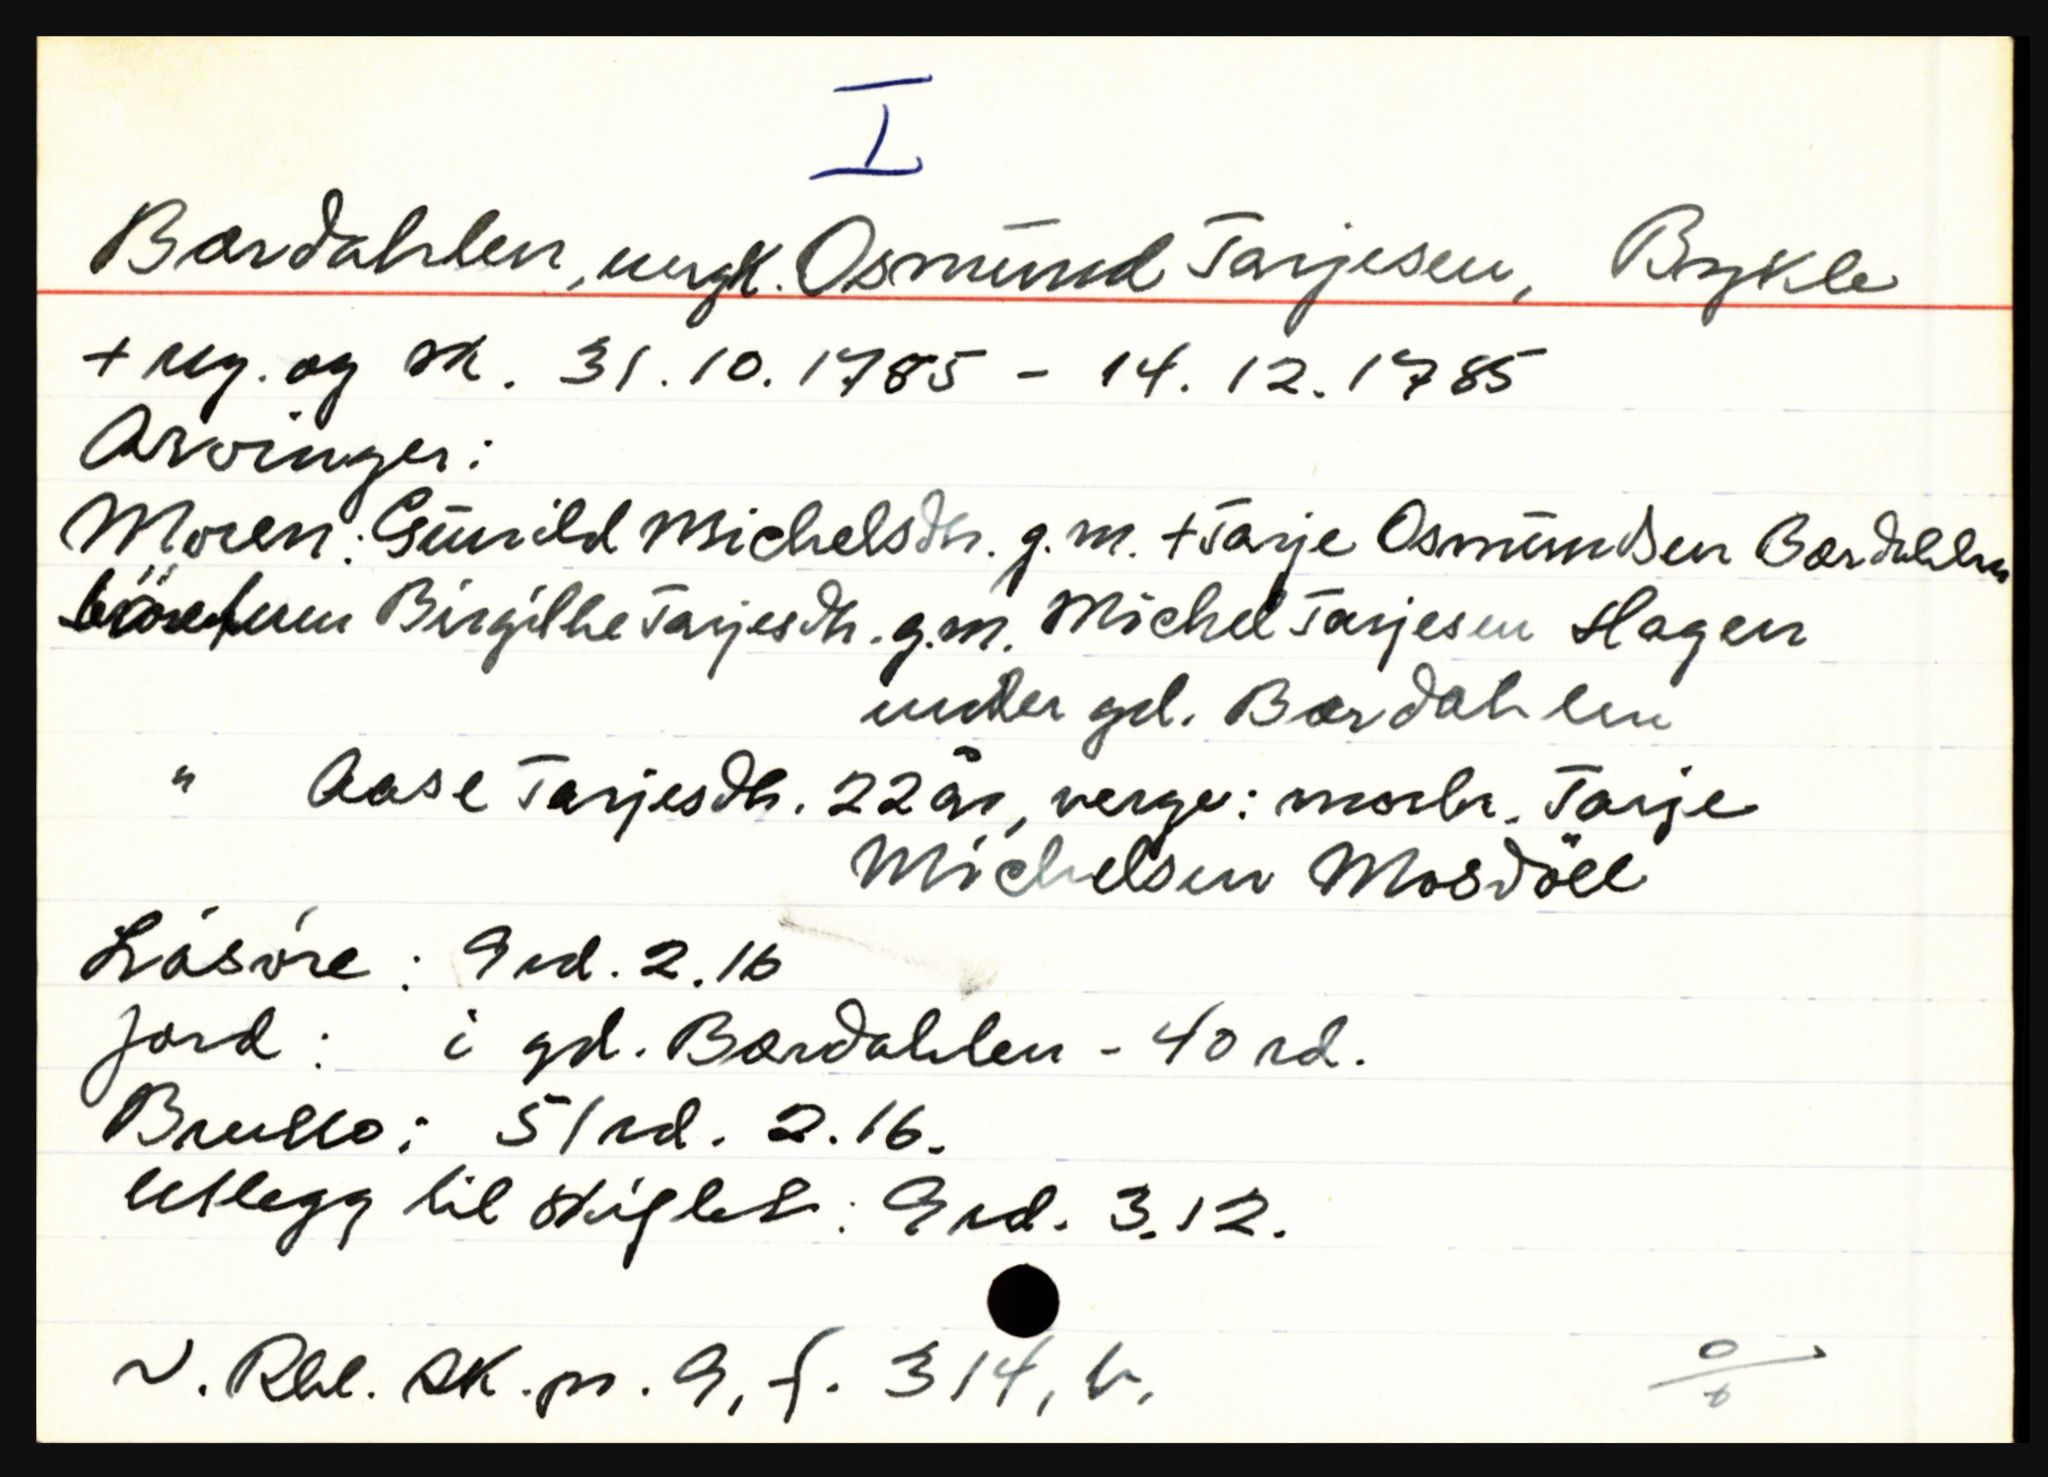 I
Bærdahlen, ungk. Osmund Tarjesen, Bykle
+ reg. og sk. 31.10.1785 - 14.12.1785
Arvinger:
Moren: Gunild Michelsdtr. g.m. + Tarje Osmundsen Bærdahlen
Birgithe Tarjesdtr. g.m. Michel Tarjesen Hagen
under gd. Bærdahlen
" Aase Tarjesdtr. 22 år, verge: morbr. Tarje
Michelsen Mosdöll
Lösöre: 9 rd. 2.16
Jord: i gd. Bærdahlen - 40 rd.
Brutto: 51 rd. 2.16.
Utlegg til skiftet: 9 rd. 3.12.
N. Rbl. sk. pr. 9, f. 314, b.